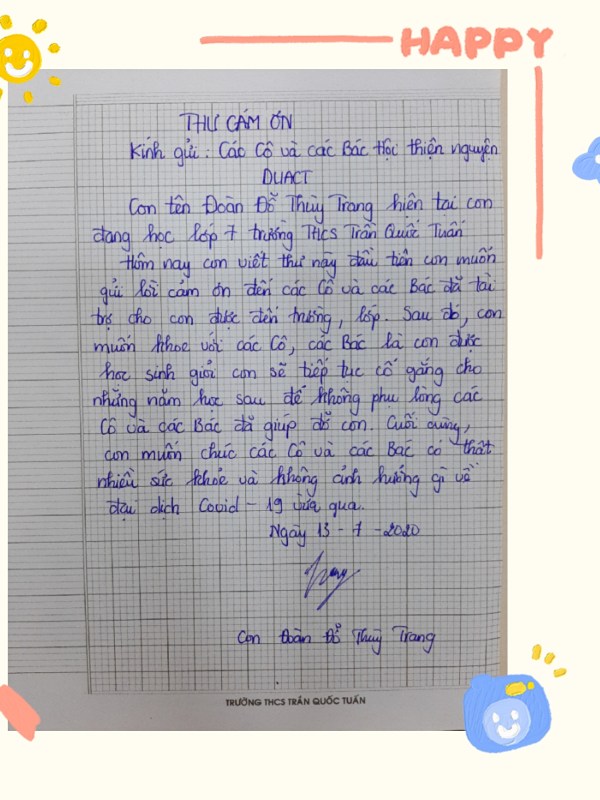 HAPPY
THƯ CẢM ƠN
Kính gửi : Các Cô và các Bác Hội thiện nguyện
DUACT
Con tên Đoàn Đỗ Thuỳ Trang hiện tai con
đang học lớp 7 trường THCS Trần Quốc Tuấn
Hôm nay con viết thư này đầu tiên con muốn
gửi lời cảm ơn đến các Cô và các Bác đã tài
trợ cho con được đến trường, lớp. Sau đó, con
muốn khoe với các Cô, các Bác là con được
học sinh giỏi con sẽ tiếp tục cố gắng cho
những năm học sau để không phụ lòng các
Cô và các Bác đã giúp đỡ con. Cuối cùng,
con muốn chúc các Cô và các Bác có thật
nhiều sức khoẻ và không ảnh hưởng gì về
đại dịch Covid - 19 vừa qua.
Ngày 13 - 7 - 2020
Trang
Con Đoàn Đỗ Thuỳ Trang
TRƯỜNG THCS TRẦN QUỐC TUẤN